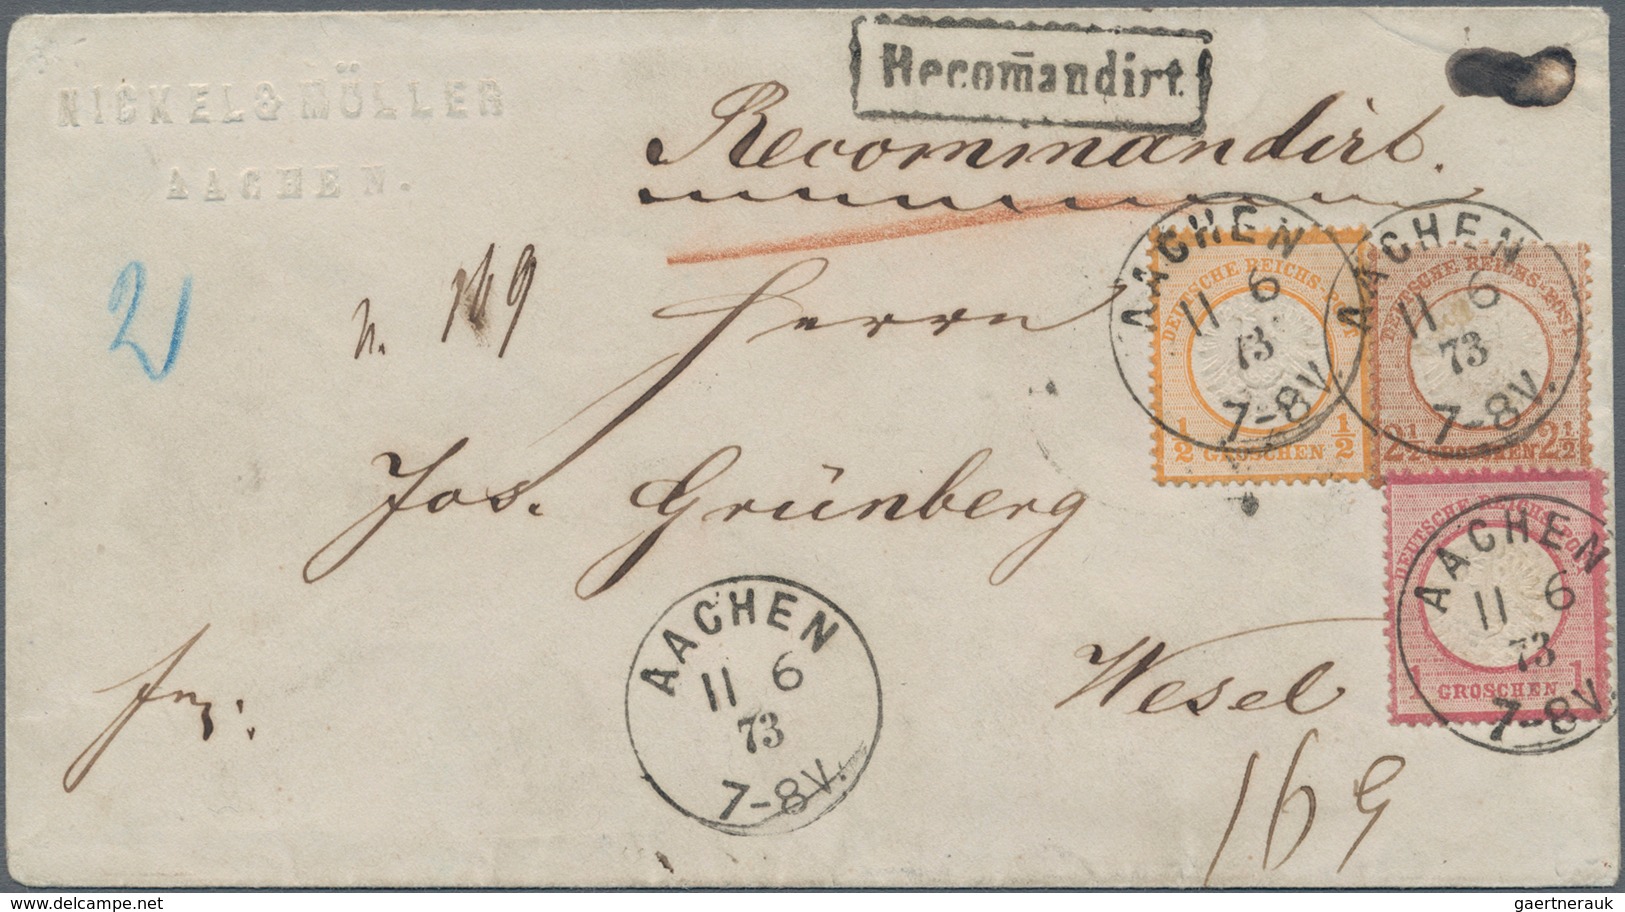 NICKEL & MÖLLER
AACHEN.
Recom̄andirt
Recommandirt.
2
n. 169
Herrn
Jos. Grünberg
Wesel
fr.
169
DEUTSCHE REICHS-POST
1/2 GROSCHEN 1/2
AACHEN
11 6
73
7-8V.
DEUTSCHE REICHS-POST
2 1/2 GROSCHEN 2 1/2
AACHEN
11 6
73
7-8V.
DEUTSCHE REICHS-POST
1 GROSCHEN 1
AACHEN
11 6
73
7-8V.
AACHEN
11 6
73
7-8V.
delcampe.net
gaertnerauk